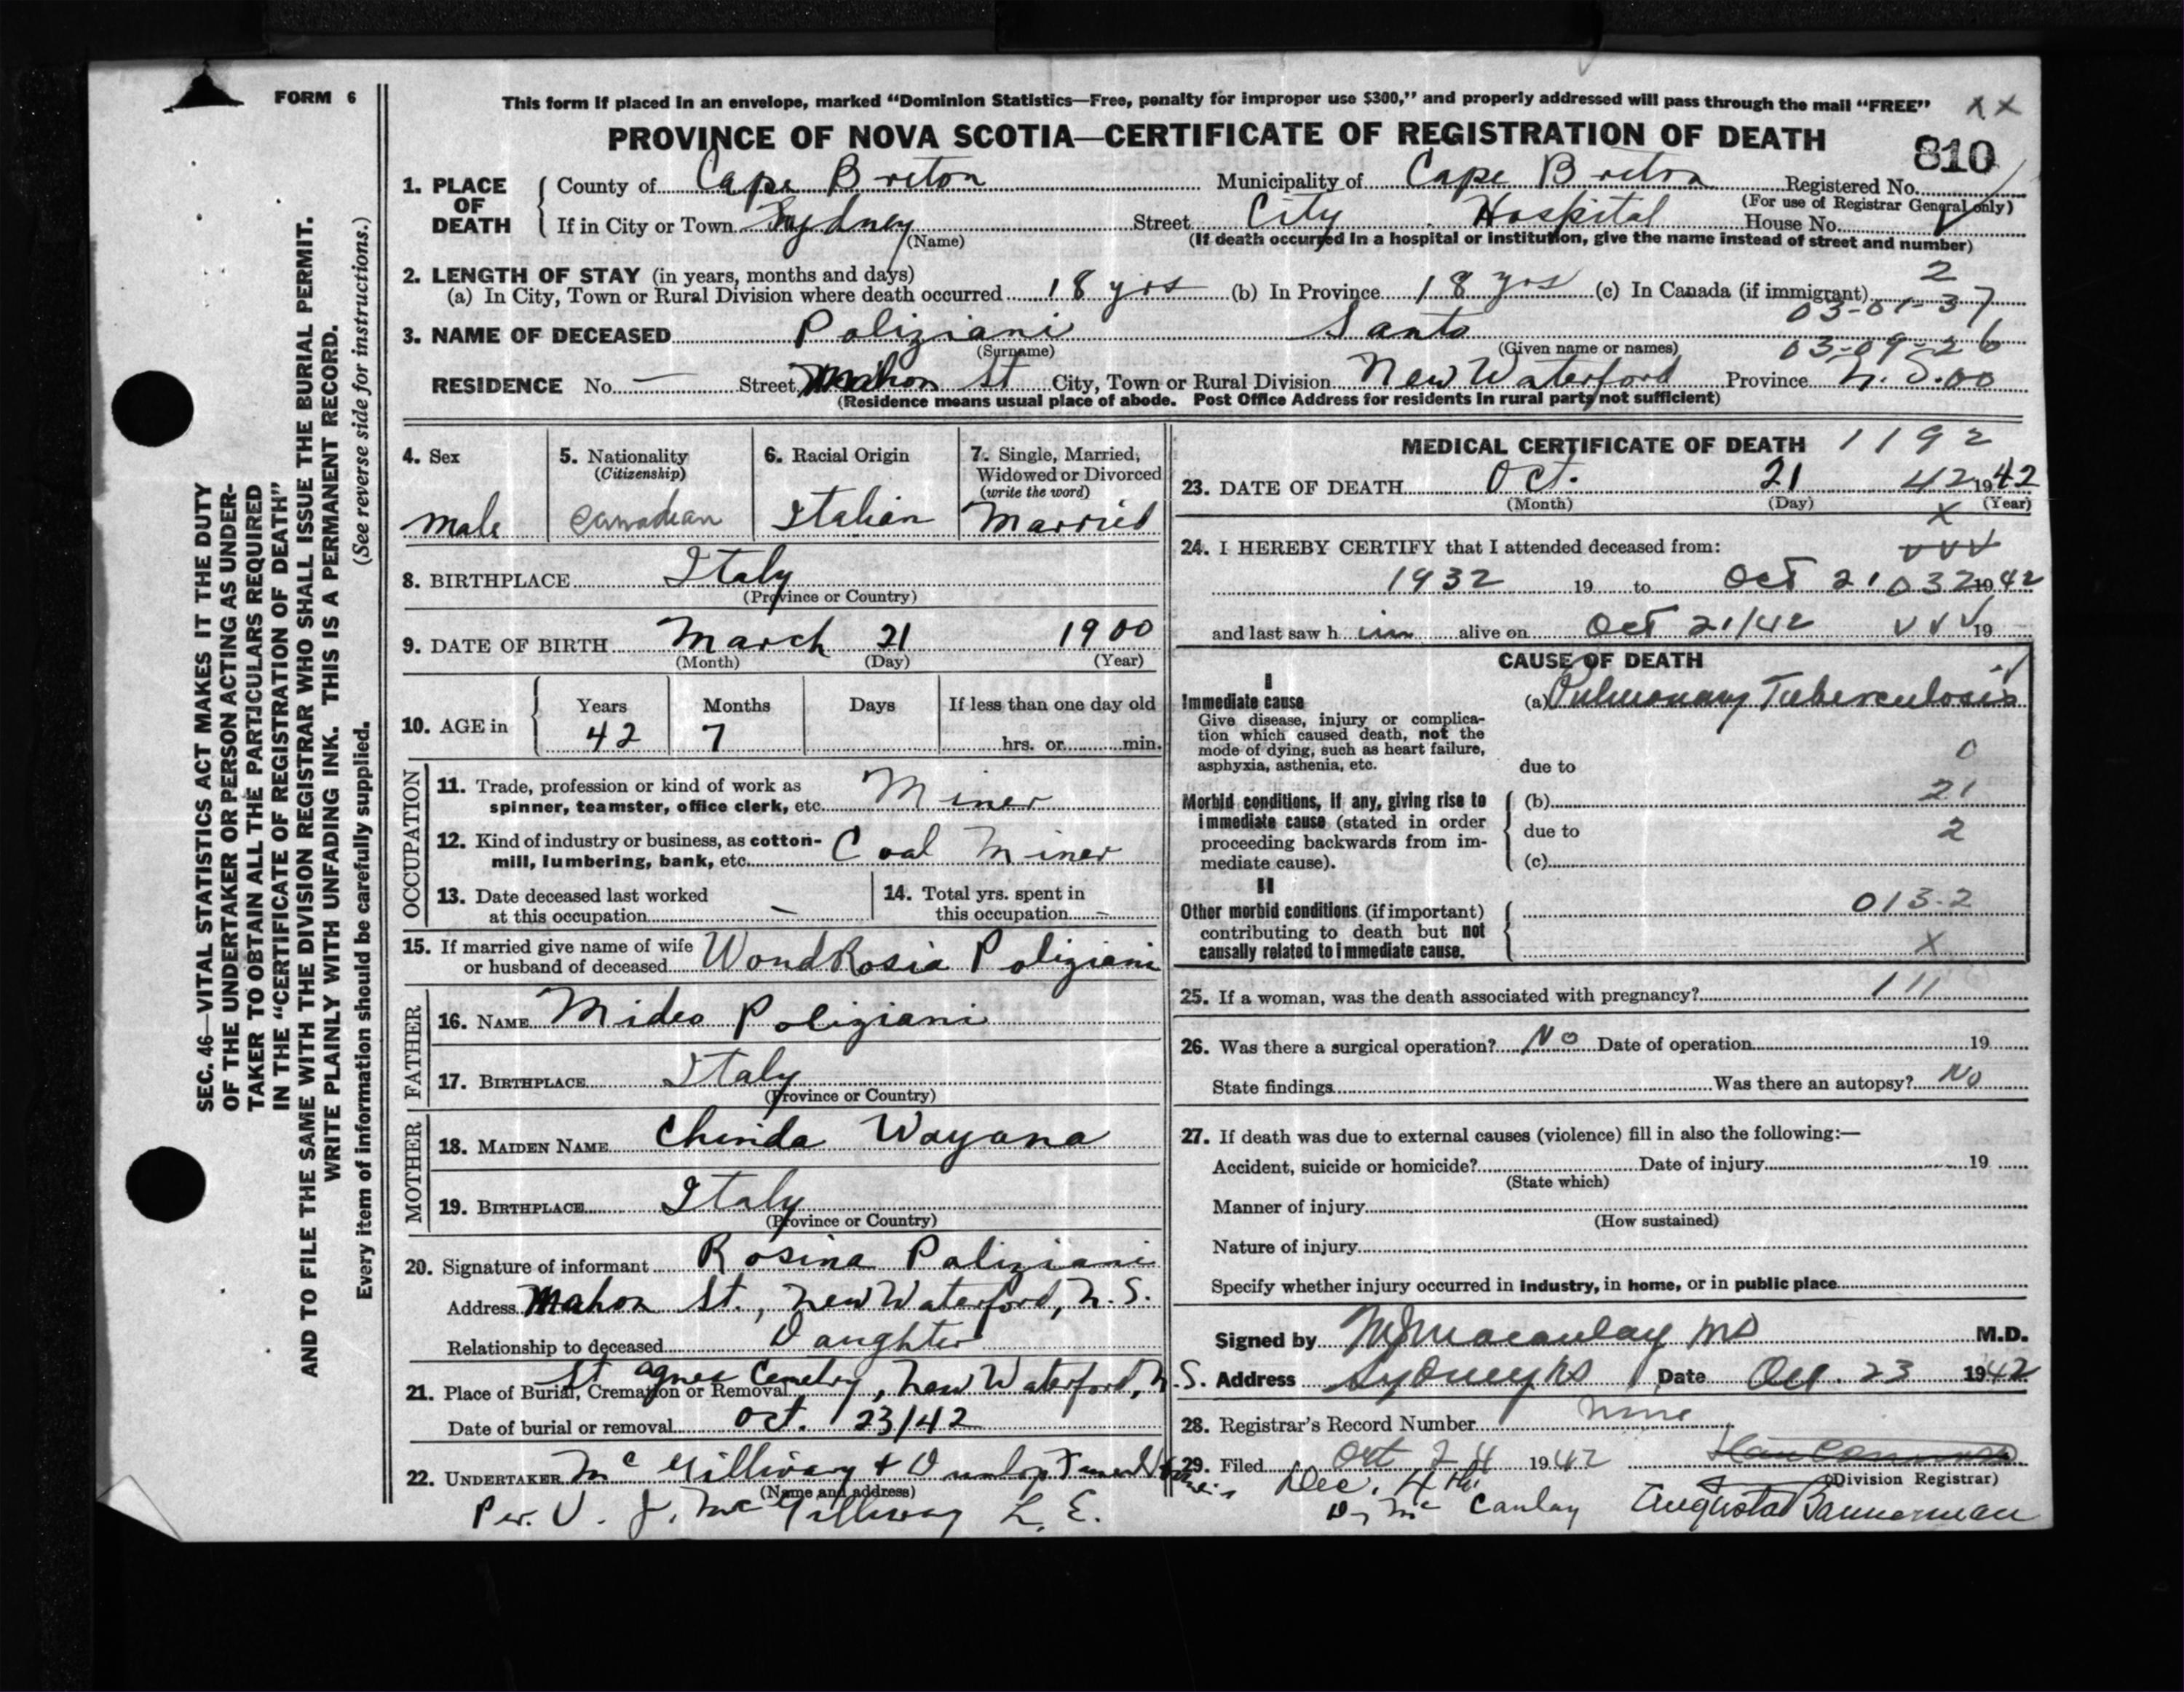 FORM 6
This form if placed in an envelope, marked “Dominion Statistics—Free, penalty for improper use $300,” and properly addressed will pass through the mail “FREE” x x
PROVINCE OF NOVA SCOTIA—CERTIFICATE OF REGISTRATION OF DEATH
810
1. PLACE OF DEATH
County of Cape Breton Municipality of Cape Breton Registered No.
(For use of Registrar General only)
If in City or Town Sydney Street City Hospital House No.
(Name) (If death occurred in a hospital or institution, give the name instead of street and number)
2. LENGTH OF STAY (in years, months and days) 2
(a) In City, Town or Rural Division where death occurred 18 yrs (b) In Province 18 yrs (c) In Canada (if immigrant)
03-01-37
3. NAME OF DECEASED Poliziani Santo
(Surname) (Given name or names) 03-09-26
RESIDENCE No. — Street Mahon St City, Town or Rural Division New Waterford Province N. S. 00
(Residence means usual place of abode. Post Office Address for residents in rural parts not sufficient)
4. Sex
male
5. Nationality
(Citizenship)
Canadian
6. Racial Origin
Italian
7. Single, Married,
Widowed or Divorced
(write the word)
Married
8. BIRTHPLACE Italy
(Province or Country)
9. DATE OF BIRTH March 21 1900
(Month) (Day) (Year)
10. AGE in
Years Months Days If less than one day old
42 7 hrs. or min.
OCCUPATION
11. Trade, profession or kind of work as
spinner, teamster, office clerk, etc. Miner
12. Kind of industry or business, as cotton-
mill, lumbering, bank, etc. Coal Miner
13. Date deceased last worked
at this occupation —
14. Total yrs. spent in
this occupation —
15. If married give name of wife
or husband of deceased WondRosia Poliziani
FATHER
16. NAME Mideo Poliziani
17. BIRTHPLACE Italy
(Province or Country)
MOTHER
18. MAIDEN NAME Chinda Wayana
19. BIRTHPLACE Italy
(Province or Country)
20. Signature of informant Rosina Poliziani
Address Mahon St., New Waterford, N. S.
Relationship to deceased Daughter
21. Place of Burial, Cremation or Removal St Agnes Cemetry, New Waterford, N.S.
Date of burial or removal Oct. 23/42
22. UNDERTAKER McGillivary + Dunlop Funeral
(Name and address)
Per. V. J. McGillivary L. E.
MEDICAL CERTIFICATE OF DEATH 1192
23. DATE OF DEATH Oct. 21 42 1942
(Month) (Day) (Year)
x
24. I HEREBY CERTIFY that I attended deceased from:
1932 19 to Oct 21 032 1942
and last saw h im alive on Oct 21/42 19
CAUSE OF DEATH
I
Immediate cause
Give disease, injury or complica-
tion which caused death, not the
mode of dying, such as heart failure,
asphyxia, asthenia, etc.
(a) Pulmonary Tuberculosis
0
due to
Morbid conditions, if any, giving rise to
immediate cause (stated in order
proceeding backwards from im-
mediate cause).
(b) 21
due to 2
(c)
II
Other morbid conditions (if important)
contributing to death but not
causally related to immediate cause.
013-2
x
25. If a woman, was the death associated with pregnancy? 111
26. Was there a surgical operation? No Date of operation 19
State findings Was there an autopsy? No
27. If death was due to external causes (violence) fill in also the following:—
Accident, suicide or homicide? Date of injury 19
(State which)
Manner of injury
(How sustained)
Nature of injury
Specify whether injury occurred in industry, in home, or in public place
Signed by MJ Macaulay MD M.D.
Address Sydney NS Date Oct. 23 1942
28. Registrar's Record Number
29. Filed Oct 24 1942
(Division Registrar)
Dec. 4th
Dr McCaulay Augusta Bannerman
SEC. 46—VITAL STATISTICS ACT MAKES IT THE DUTY
OF THE UNDERTAKER OR PERSON ACTING AS UNDER-
TAKER TO OBTAIN ALL THE PARTICULARS REQUIRED
IN THE “CERTIFICATE OF REGISTRATION OF DEATH”
AND TO FILE THE SAME WITH THE DIVISION REGISTRAR WHO SHALL ISSUE THE BURIAL PERMIT.
WRITE PLAINLY WITH UNFADING INK. THIS IS A PERMANENT RECORD.
Every item of information should be carefully supplied. (See reverse side for instructions.)